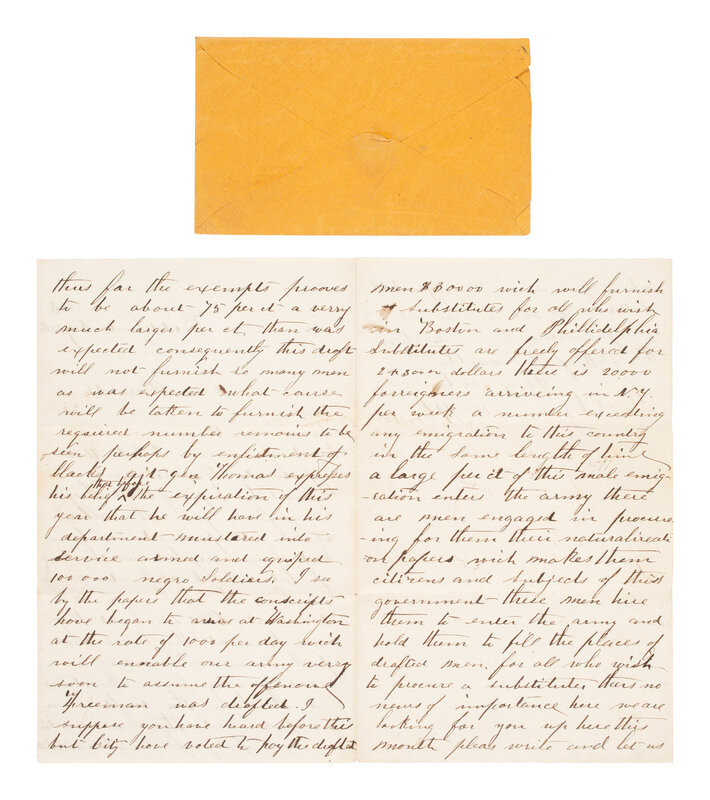 thus far the exempts prooves
to be about 75 per ct a verry
much larger per ct than was
expected consequently this draft
will not furnish so many men
as was expected what course
will be taken to furnish the
required number remains to be
seen perhaps by enlistment of
blacks gen Thomas expresses
his belief that before the expiration of this
year that he will have in his
department mustared into
service armed and equiped
100 000 negro Soldiers. I see
by the papers that the conscripts
have began to arive at Washington
at the rate of 1000 per day wich
will ennable our army verry
soon to assume the offencive
Freeman was drafted. I
suppose you have heard before this
but City have voted to pay the drafted
men $30000 wich will furnish
Substitutes for all who wish
in Boston and Phillidelphia
Substitutes are freely offered for
dollars there is 20000
forreigners arriveing in N.Y
per week a number exceeding
any emigration to this country
in the same length of time
a large per ct of this male emig-
-ration enters the army there
are men engaged in procure
-ing for them their naturalizati
on papers wich makes them
citizens and Subjects of this
government these men hire
them to enter the army and
hold them to fill the places of
drafted men. for all who wish
to procure a substitute. thars no
news of importance here we are
looking for you up here this
month pleas write and let us